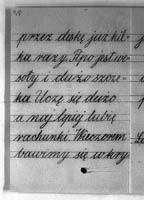 przez deskę już kil-
ka razy. Pipo jest we-
soły i dużo szcze-
ka Uczę się dużo
a naj lepiej lubię
rachunki. Wieczorem
bawimy się w kry-